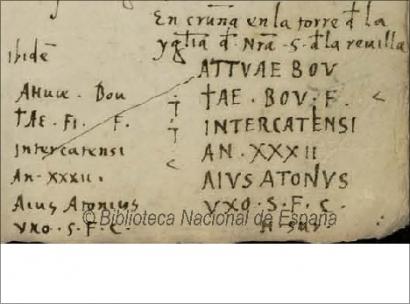 En cruña en la torre đ la
ygłia đ Nrã · S · đ la revilla
ibidē
ATTVAE BOV
ŦAE · BOV · F.
INTERCATENSI
AN · XXXII
AIVS ATONVS
VXO · S · F · C ·
Attuae · Bou
ŦAE · FI · F.
intercatensi
An · xxxii ·
Aius Atonius
VXO · S · F · C ·
© Biblioteca Nacional de España